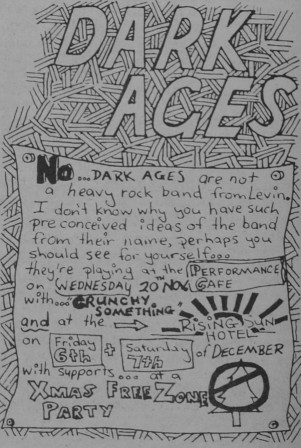 DARK
AGES
No... DARK AGES are not
a heavy rock band from Levin.
I don't know why you have such
pre conceived ideas of the band
from their name, perhaps you
should see for yourself...
they're playing at the PERFORMANCE
on WEDNESDAY 20TH NOV CAFE
with... CRUNCHY
SOMETHING
and at the RISING SUN
HOTEL
on Friday 6th + Saturday 7th of DECEMBER
with supports... at a
XMAS FREE ZONE
PARTY